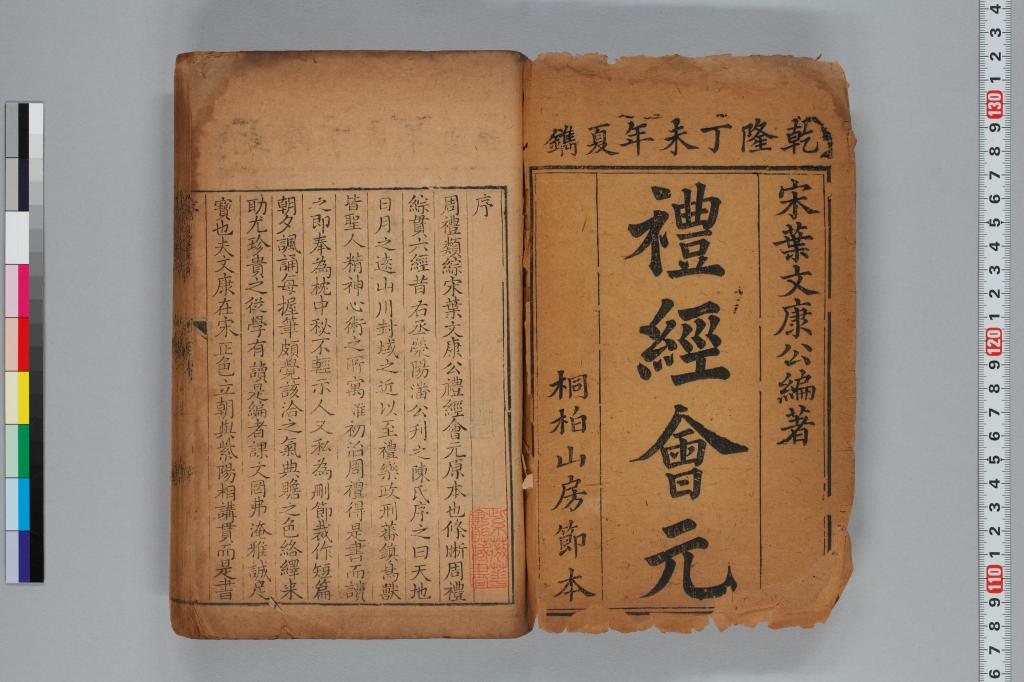 乾隆丁未年夏鐫
宋葉文康公編著
禮經會元
桐柏山房節本
序
周禮類綜宋葉文康公禮經會元原本也條晰周禮
綜貫六經昔右丞滎陽潘公刊之陳氏序之曰天地
日月之遠山川封域之近以至禮樂政刑蕃鎮鳥獸
皆聖人精神心術之所寓誰初治周禮得是書而讀
之即奉為枕中秘不輕示人又私為刪節裁作短篇
朝夕諷誦每握筆頗覺該洽之氣典贍之色絡繹来
助尤珍貴之從學有讀是編者課文罔弗淹雅誠足
寶也夫文康在宋正色立朝與紫陽相講貫而是書
4
3
2
1
130
9
8
7
6
5
4
3
2
1
120
9
8
7
6
5
4
3
2
1
110
9
8
7
6